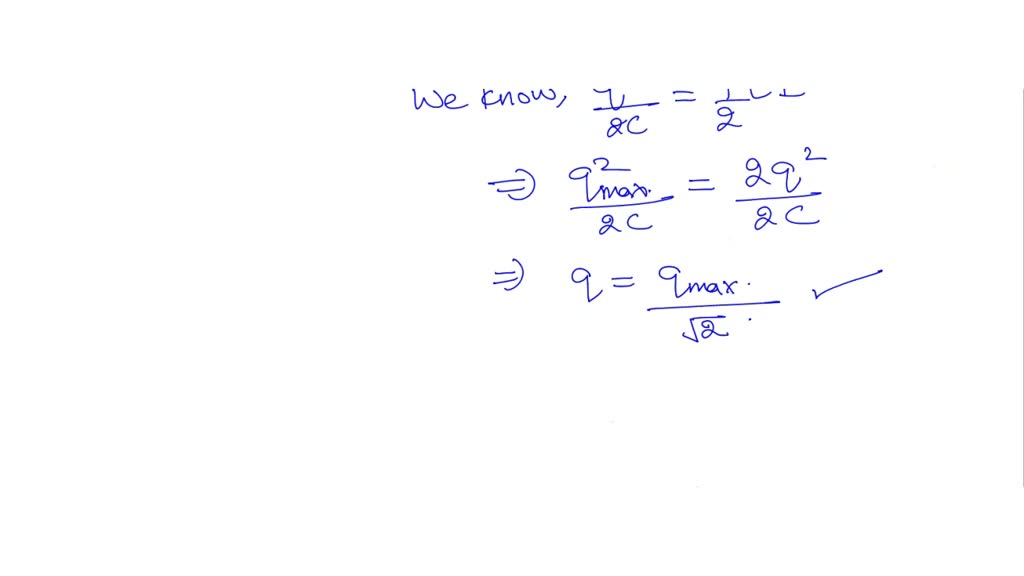 We know, /2C = /2
⇒ q²max./2C = 2q²/2C
⇒ q = qmax./√2 . ✓